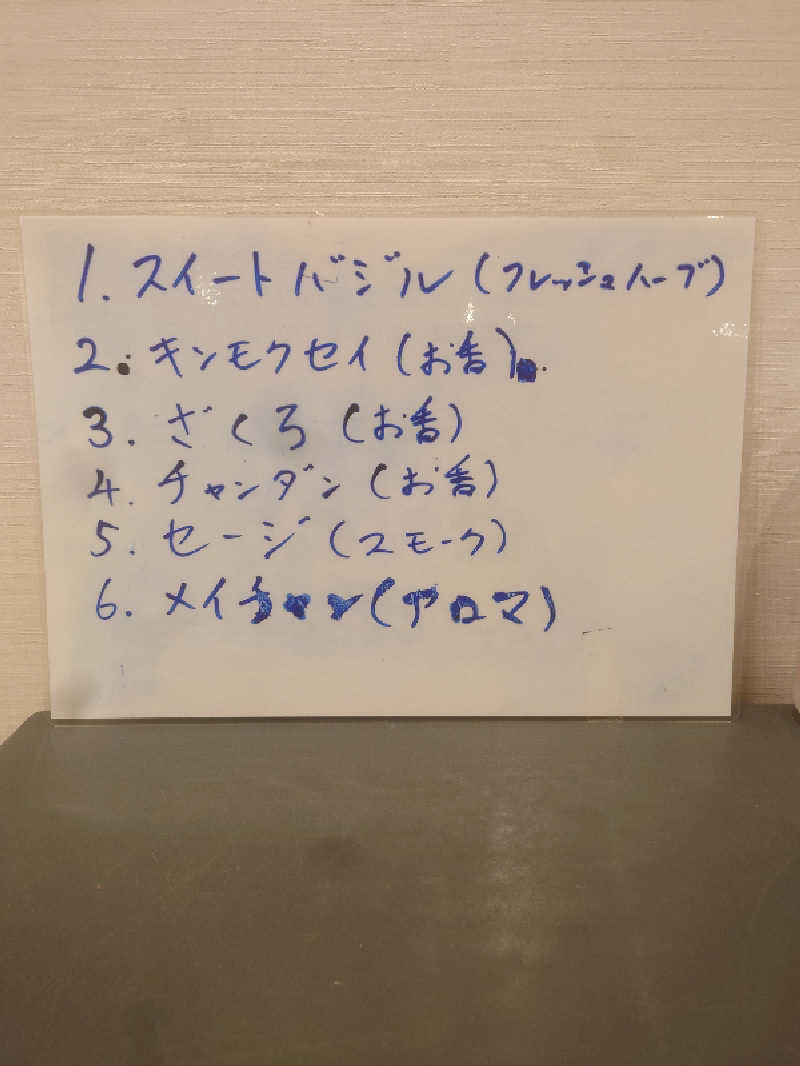 1. スイートバジル(フレッシュハーブ)
2. キンモクセイ(お香)
3. ざくろ(お香)
4. チャンダン(お香)
5. セージ(スモーク)
6. メイチャン(アロマ)